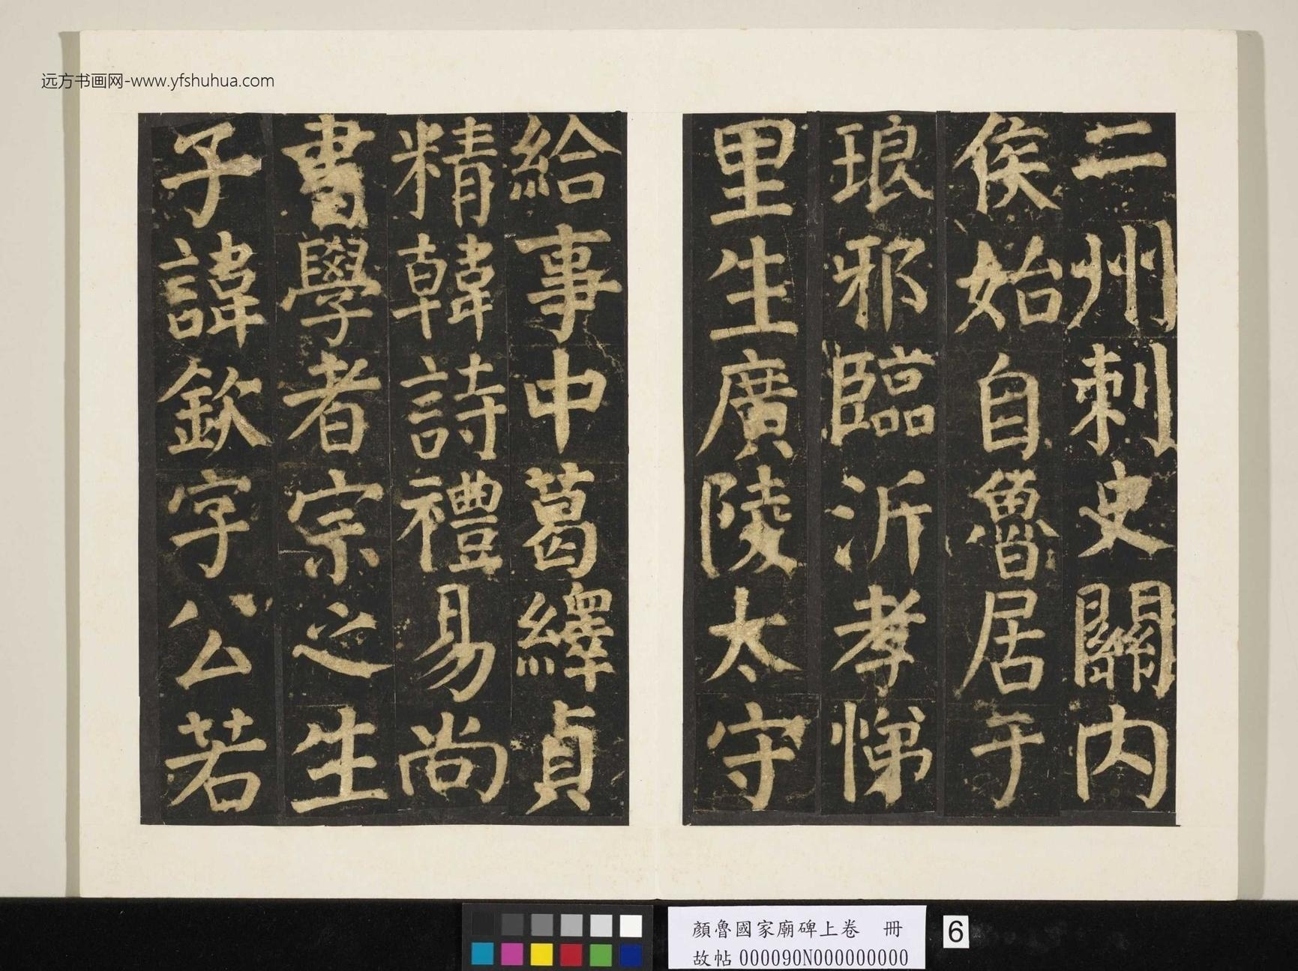 远方书画网-www.yfshuhua.com
二州刺史關内
侯始自魯居于
琅邪臨沂孝悌
里生廣陵太守
給事中葛繹貞
精韓詩禮易尚
書學者宗之生
子諱欽字公若
顏魯國家廟碑上卷 冊
故帖 000090N000000000
6